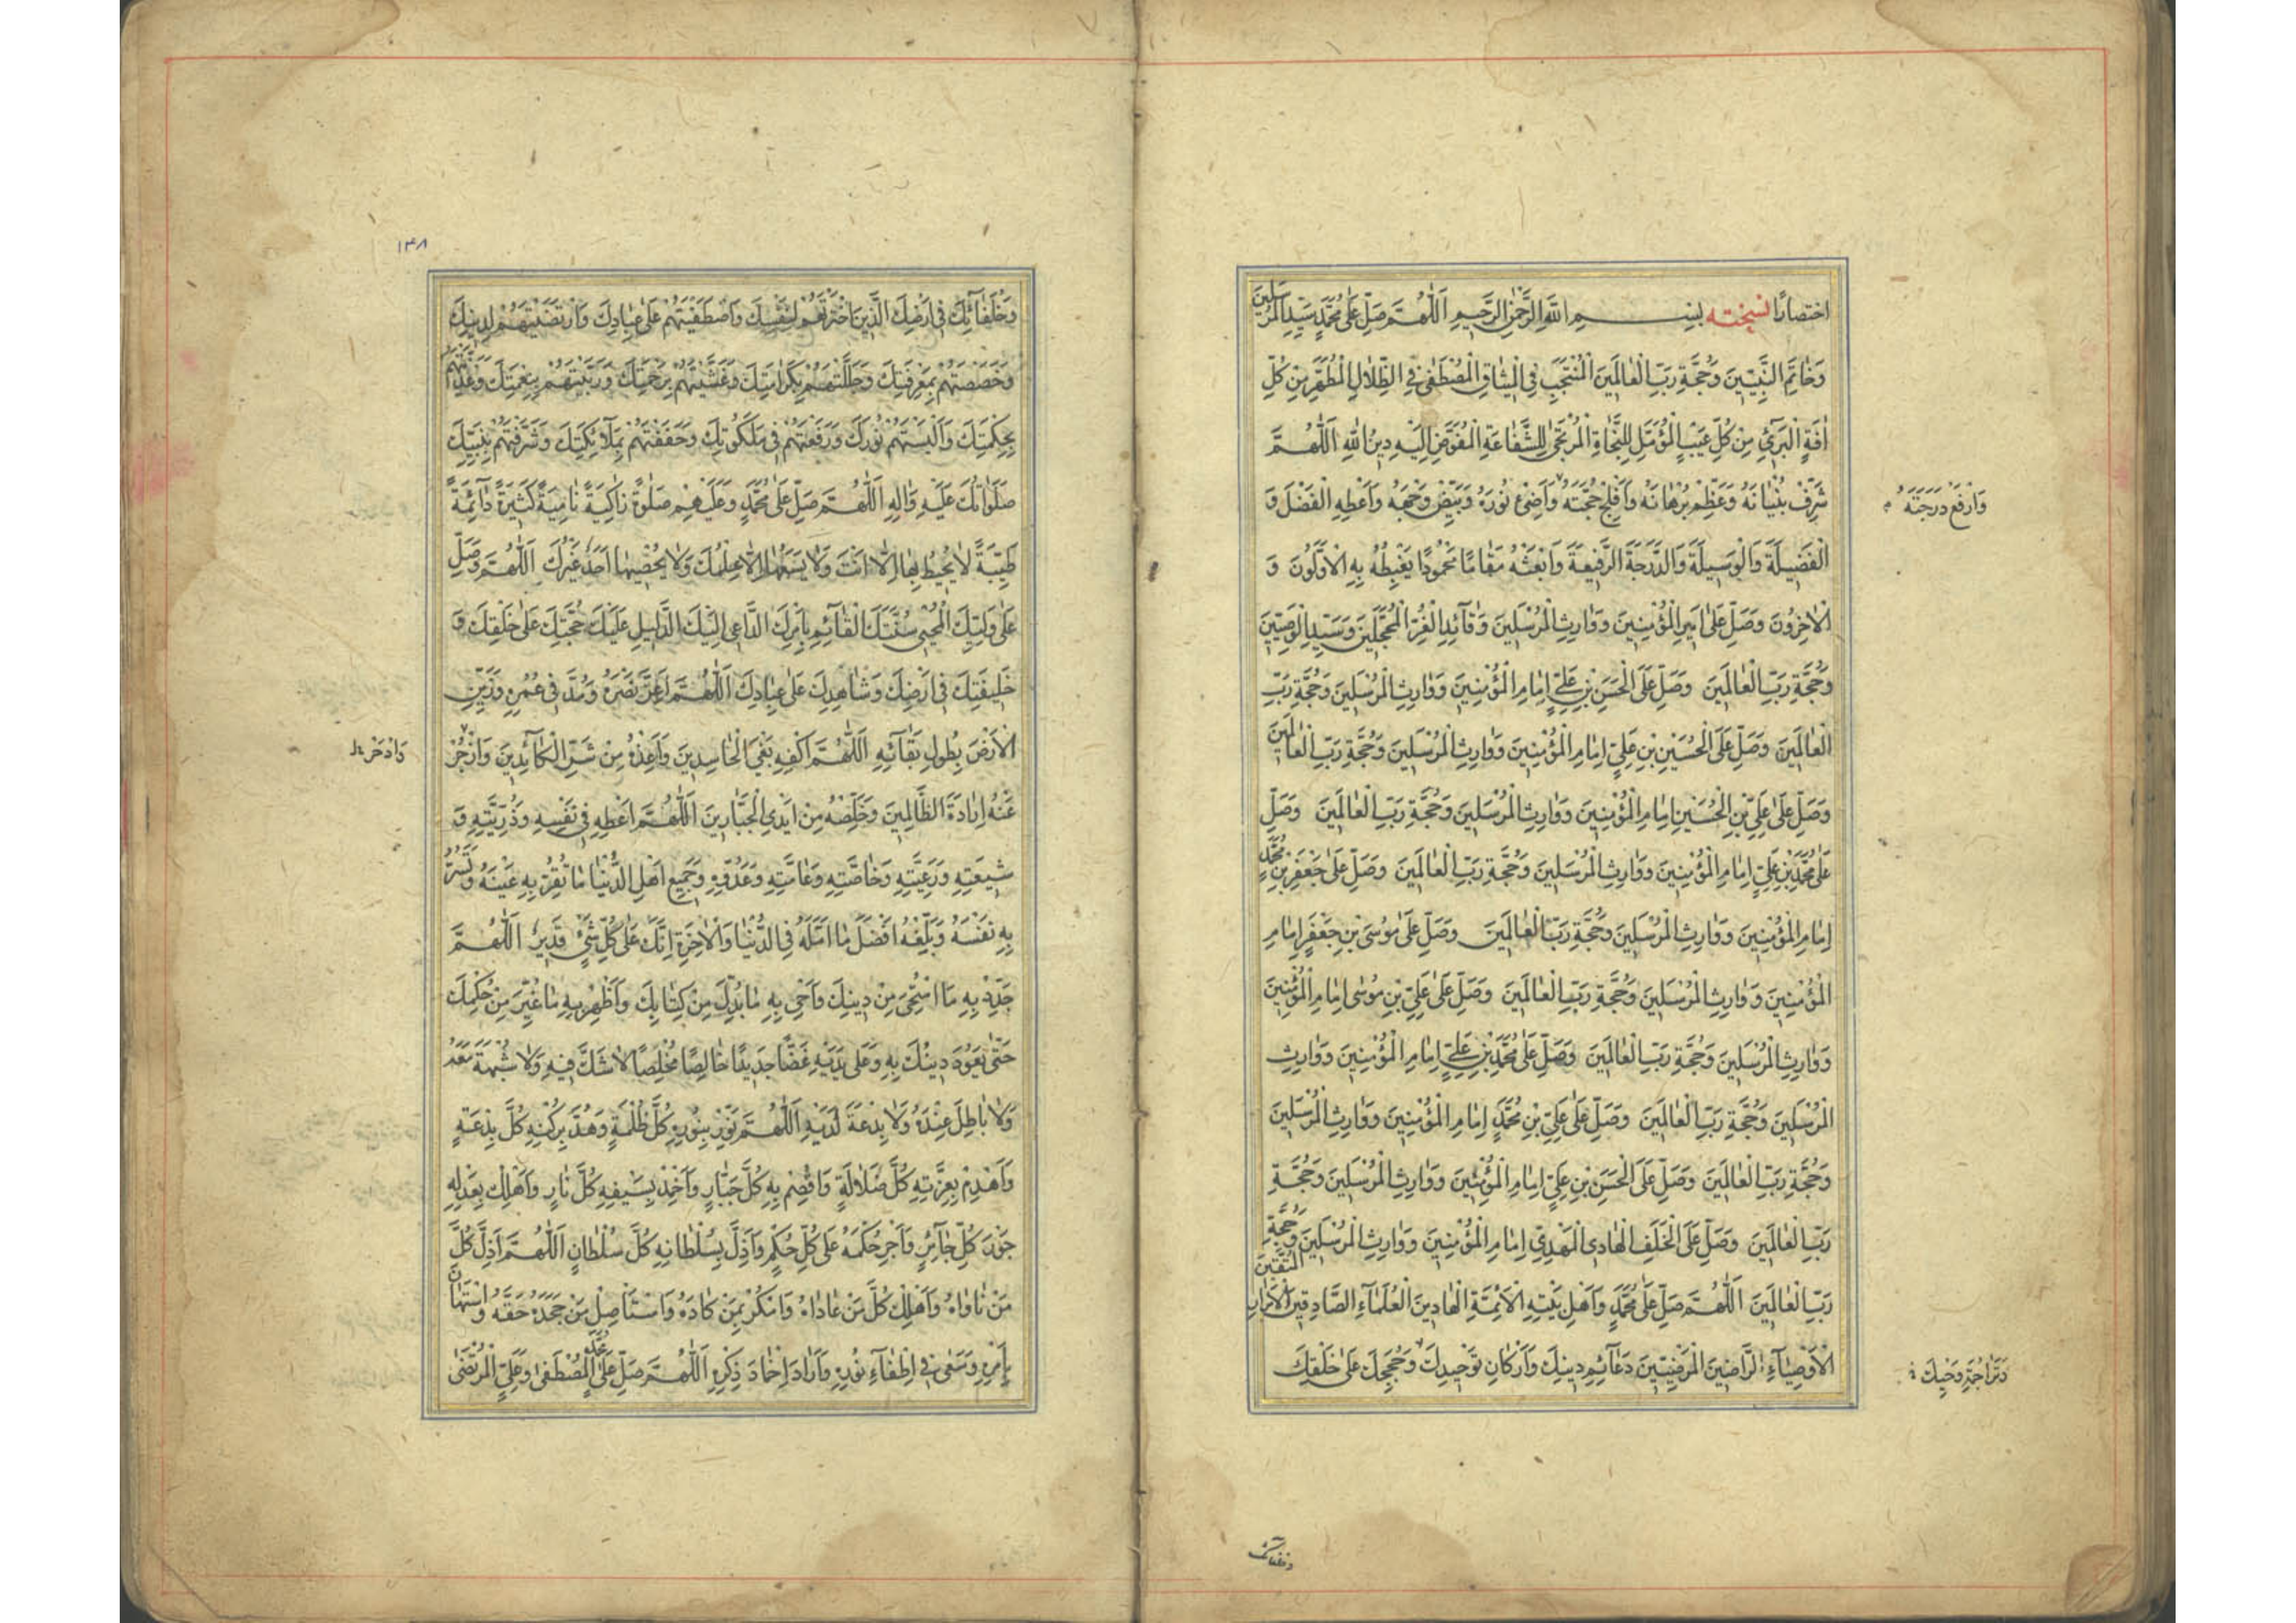 اختصارًا نسخته بسم الله الرحمن الرحيم اللّهمّ صلّ على محمّد سيّد المرسلين
وَخاتَمِ النَّبِيّينَ وَحُجَّةِ رَبِّ الْعالَمينَ الْمُنْتَجَبِ فِي الْميثاقِ الْمُصْطَفى فِي الظِّلالِ الْمُطَهَّرِ مِنْ كُلِّ
افَةٍ الْبَرئِ مِنْ كُلِّ عَيْبٍ الْمُؤَمَّلِ لِلنَّجاةِ الْمُرْتَجى لِلشَّفاعَةِ الْمُفَوَّضِ اِلَيْهِ دينُ اللهِ اَللّهُمَّ
شَرِّفْ بُنْيانَهُ وَعَظِّمْ بُرْهانَهُ وَاَفْلِجْ حُجَّتَهُ وَاَضِئْ نُورَهُ وَبَيِّضْ وَجْهَهُ وَاَعْطِهِ الْفَضْلَ وَ
وَارْفَعْ دَرَجَتَهُ
الْفَضيلَةَ وَالْوَسيلَةَ وَالدَّرَجَةَ الرَّفيعَةَ وَابْعَثْهُ مَقامًا مَحْمُودًا يَغْبِطُهُ بِهِ الْاَوَّلُونَ وَ
الْاخِرُونَ وَصَلِّ عَلى اَميرِ الْمُؤْمِنينَ وَوارِثِ الْمُرْسَلينَ وَقائِدِ الْغُرِّ الْمُحَجَّلينَ وَسَيِّدِ الْوَصِيّينَ
وَحُجَّةِ رَبِّ الْعالَمينَ وَصَلِّ عَلَى الْحَسَنِ بْنِ عَلِيٍّ اِمامِ الْمُؤْمِنينَ وَوارِثِ الْمُرْسَلينَ وَحُجَّةِ رَبِّ
الْعالَمينَ وَصَلِّ عَلَى الْحُسَيْنِ بْنِ عَلِيٍّ اِمامِ الْمُؤْمِنينَ وَوارِثِ الْمُرْسَلينَ وَحُجَّةِ رَبِّ الْعالَمينَ
وَصَلِّ عَلى عَلِيِّ بْنِ الْحُسَيْنِ اِمامِ الْمُؤْمِنينَ وَوارِثِ الْمُرْسَلينَ وَحُجَّةِ رَبِّ الْعالَمينَ وَصَلِّ
عَلى مُحَمَّدِ بْنِ عَلِيٍّ اِمامِ الْمُؤْمِنينَ وَوارِثِ الْمُرْسَلينَ وَحُجَّةِ رَبِّ الْعالَمينَ وَصَلِّ عَلى جَعْفَرِ بْنِ مُحَمَّدٍ
اِمامِ الْمُؤْمِنينَ وَوارِثِ الْمُرْسَلينَ وَحُجَّةِ رَبِّ الْعالَمينَ وَصَلِّ عَلى مُوسَى بْنِ جَعْفَرٍ اِمامِ
الْمُؤْمِنينَ وَوارِثِ الْمُرْسَلينَ وَحُجَّةِ رَبِّ الْعالَمينَ وَصَلِّ عَلى عَلِيِّ بْنِ مُوسى اِمامِ الْمُؤْمِنينَ
وَوارِثِ الْمُرْسَلينَ وَحُجَّةِ رَبِّ الْعالَمينَ وَصَلِّ عَلى مُحَمَّدِ بْنِ عَلِيٍّ اِمامِ الْمُؤْمِنينَ وَوارِثِ
الْمُرْسَلينَ وَحُجَّةِ رَبِّ الْعالَمينَ وَصَلِّ عَلى عَلِيِّ بْنِ مُحَمَّدٍ اِمامِ الْمُؤْمِنينَ وَوارِثِ الْمُرْسَلينَ
وَحُجَّةِ رَبِّ الْعالَمينَ وَصَلِّ عَلَى الْحَسَنِ بْنِ عَلِيٍّ اِمامِ الْمُؤْمِنينَ وَوارِثِ الْمُرْسَلينَ وَحُجَّةِ
رَبِّ الْعالَمينَ وَصَلِّ عَلَى الْخَلَفِ الْهادِي الْمَهْدِيِّ اِمامِ الْمُؤْمِنينَ وَوارِثِ الْمُرْسَلينَ وَحُجَّةِ
رَبِّ الْعالَمينَ اَللّهُمَّ صَلِّ عَلى مُحَمَّدٍ وَاَهْلِ بَيْتِهِ الْاَئِمَّةِ الْهادينَ الْعُلَماءِ الصّادِقينَ الْاَبْرارِ الْمُتَّقينَ
الْاَوْصِياءِ الرّاضينَ الْمَرْضِيّينَ دَعائِمِ دينِكَ وَاَرْكانِ تَوْحيدِكَ وَحُجَجِكَ عَلى خَلْقِكَ
وَتَراجِمَةِ وَحْيِكَ
وخلفائك
۱۳۸
وَخُلَفائِكَ في اَرْضِكَ الَّذينَ اخْتَرْتَهُمْ لِنَفْسِكَ وَاصْطَفَيْتَهُمْ عَلى عِبادِكَ وَارْتَضَيْتَهُمْ لِدينِكَ
وَخَصَصْتَهُمْ بِمَعْرِفَتِكَ وَجَلَّلْتَهُمْ بِكَرامَتِكَ وَغَشَّيْتَهُمْ بِرَحْمَتِكَ وَرَبَّيْتَهُمْ بِنِعْمَتِكَ وَغَذَّيْتَهُمْ
بِحِكْمَتِكَ وَاَلْبَسْتَهُمْ نُورَكَ وَرَفَعْتَهُمْ في مَلَكُوتِكَ وَحَفَفْتَهُمْ بِمَلائِكَتِكَ وَشَرَّفْتَهُمْ بِنَبِيِّكَ
صَلَواتُكَ عَلَيْهِ وَالِهِ اَللّهُمَّ صَلِّ عَلى مُحَمَّدٍ وَعَلَيْهِمْ صَلوةً زاكِيَةً نامِيَةً كَثيرَةً دائِمَةً
طَيِّبَةً لا يُحيطُ بِها اِلّا اَنْتَ وَلا يَسَعُها اِلّا عِلْمُكَ وَلا يُحْصيها اَحَدٌ غَيْرُكَ اَللّهُمَّ وَصَلِّ
عَلى وَلِيِّكَ الْمُحْيي سُنَّتَكَ الْقائِمِ بِاَمْرِكَ الدّاعي اِلَيْكَ الدَّليلِ عَلَيْكَ حُجَّتِكَ عَلى خَلْقِكَ وَ
خَليفَتِكَ في اَرْضِكَ وَشاهِدِكَ عَلى عِبادِكَ اَللّهُمَّ اَعِزَّ نَصْرَهُ وَمُدَّ في عُمْرِهِ وَزَيِّنِ
الْاَرْضَ بِطُولِ بَقائِهِ اَللّهُمَّ اكْفِهِ بَغْيَ الْحاسِدينَ وَاَعِذْهُ مِنْ شَرِّ الْكائِدينَ وَازْجُرْ
وَادْحَرْ
عَنْهُ اِرادَةَ الظّالِمينَ وَخَلِّصْهُ مِنْ اَيْدِي الْجَبّارينَ اَللّهُمَّ اَعْطِهِ في نَفْسِهِ وَذُرِّيَّتِهِ وَ
شيعَتِهِ وَرَعِيَّتِهِ وَخاصَّتِهِ وَعامَّتِهِ وَعَدُوِّهِ وَجَميعِ اَهْلِ الدُّنْيا ما تُقِرُّ بِهِ عَيْنَهُ وَتَسُرُّ
بِهِ نَفْسَهُ وَبَلِّغْهُ اَفْضَلَ ما اَمَّلَهُ فِي الدُّنْيا وَالْاخِرَةِ اِنَّكَ عَلى كُلِّ شَيْءٍ قَديرٌ اَللّهُمَّ
جَدِّدْ بِهِ مَا امْتَحى مِنْ دينِكَ وَاَحْيِ بِهِ ما بُدِّلَ مِنْ كِتابِكَ وَاَظْهِرْ بِهِ ما غُيِّرَ مِنْ حُكْمِكَ
حَتّى يَعُودَ دينُكَ بِهِ وَعَلى يَدَيْهِ غَضًّا جَديدًا خالِصًا مُخْلَصًا لا شَكَّ فيهِ وَلا شُبْهَةَ مَعَهُ
وَلا باطِلَ عِنْدَهُ وَلا بِدْعَةَ لَدَيْهِ اَللّهُمَّ نَوِّرْ بِنُورِهِ كُلَّ ظُلْمَةٍ وَهُدَّ بِرُكْنِهِ كُلَّ بِدْعَةٍ
وَاَهْدِمْ بِعِزَّتِهِ كُلَّ ضَلالَةٍ وَاقْصِمْ بِهِ كُلَّ جَبّارٍ وَاَخْمِدْ بِسَيْفِهِ كُلَّ نارٍ وَاَهْلِكْ بِعَدْلِهِ
جَوْرَ كُلِّ جائِرٍ وَاَجْرِ حُكْمَهُ عَلى كُلِّ حُكْمٍ وَاَذِلَّ بِسُلْطانِهِ كُلَّ سُلْطانٍ اَللّهُمَّ اَذِلَّ كُلَّ
مَنْ ناواهُ وَاَهْلِكْ كُلَّ مَنْ عاداهُ وَامْكُرْ بِمَنْ كادَهُ وَاسْتَأْصِلْ مَنْ جَحَدَهُ حَقَّهُ وَاسْتَهانَ
بِاَمْرِهِ وَسَعى في اِطْفاءِ نُورِهِ وَاَرادَ اِخْمادَ ذِكْرِهِ اَللّهُمَّ صَلِّ عَلى مُحَمَّدٍ الْمُصْطَفى وَعَلِيٍّ الْمُرْتَضى